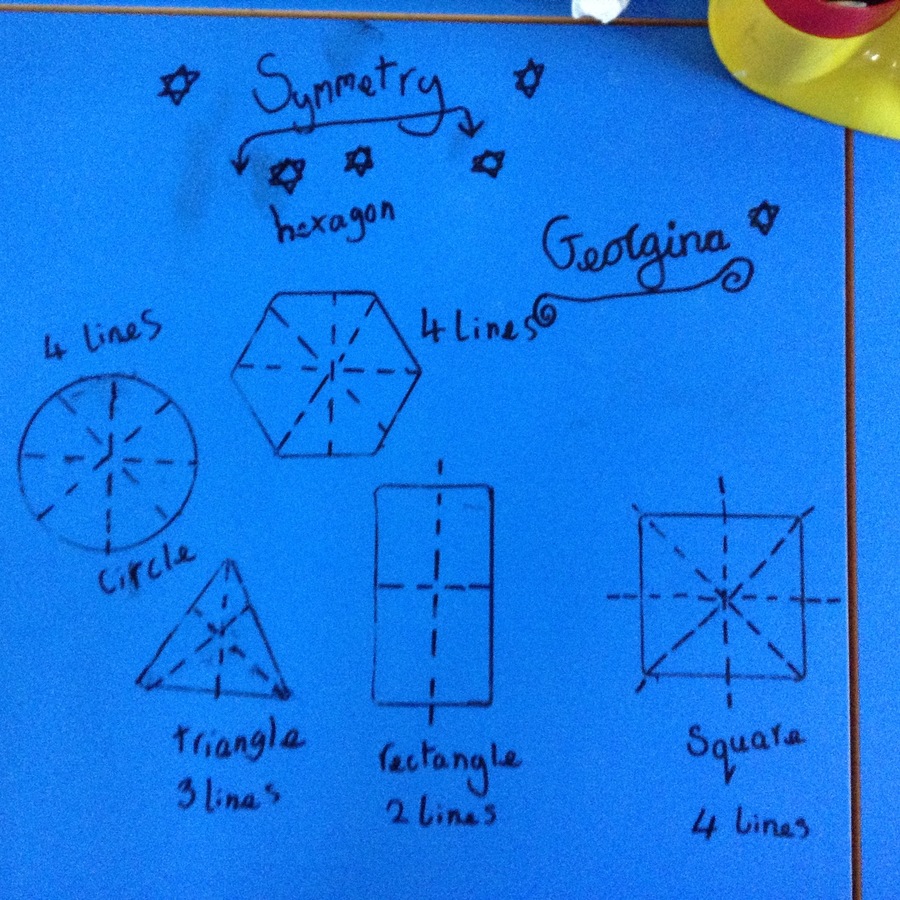 Symmetry
hexagon
Georgina
4 Lines
4 Lines
circle
triangle
3 lines
rectangle
2 lines
Square
4 lines